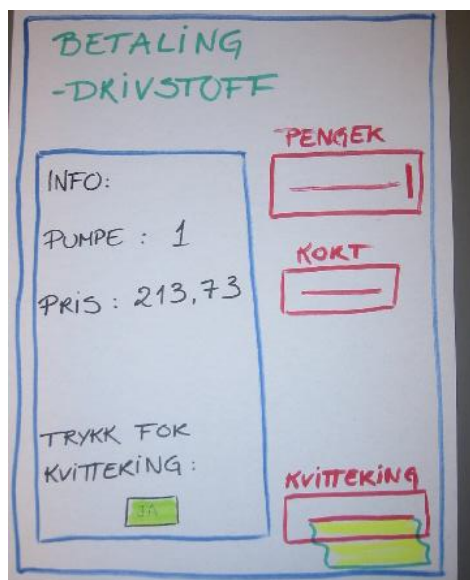 BETALING
-DRIVSTOFF
INFO:
PUMPE : 1
PRIS : 213,73
TRYKK FOR
KVITTERING :
JA
PENGEK
KORT
KVITTERING